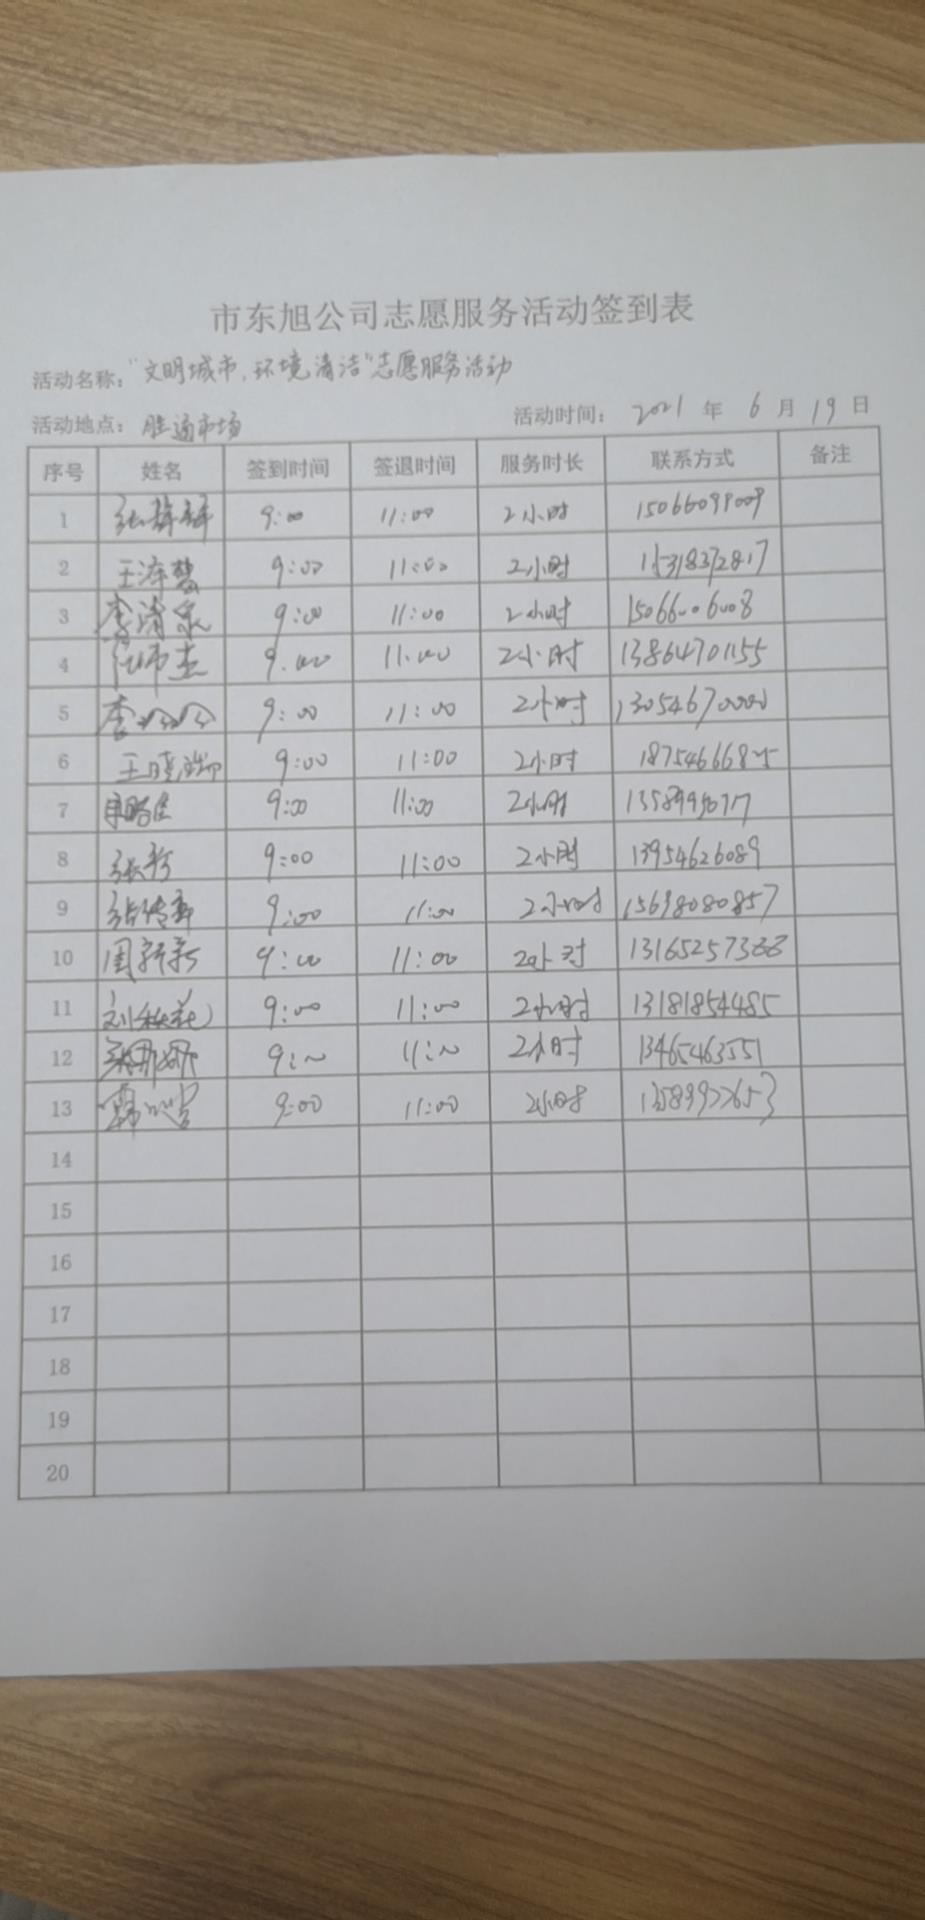 市东旭公司志愿服务活动签到表
活动名称：“文明城市，环境清洁”志愿服务活动
活动地点：胜通市场 活动时间：2021年6月19日
序号 姓名 签到时间 签退时间 服务时长 联系方式 备注
1 9:00 11:00 2小时 15066099009
2 9:00 11:00 2小时 15318372817
3 李清泉 9:00 11:00 2小时 15066006008
4 9:00 11:00 2小时 13864701155
5 9:00 11:00 2小时 13054670000
6 王晓瑞 9:00 11:00 2小时
7 9:00 11:00 2小时
8 9:00 11:00 2小时 13954626089
9 9:00 11:00 2小时 15698080857
10 周新新 9:00 11:00 2小时 13165257388
11 刘秋花 9:00 11:00 2小时 13181854485
12 9:00 11:00 2小时 13465463551
13 9:00 11:00 2小时 13589977653
14
15
16
17
18
19
20